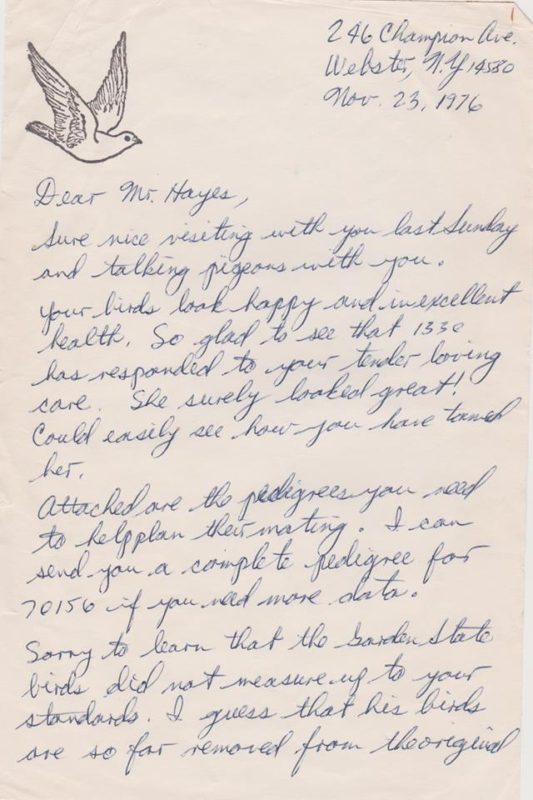 246 Champion Ave.
Webster, N.Y 14580
Nov. 23, 1976
Dear Mr. Hayes,
Sure nice visiting with you last Sunday
and talking pigeons with you.
Your birds look happy and in excellent
health. So glad to see that 1330
has responded to your tender loving
care. She surely looked great!
Could easily see how you have tamed
her.
Attached are the pedigrees you need
to help plan their mating. I can
send you a complete pedigree for
70156 if you need more data.
Sorry to learn that the Garden State
birds did not measure up to your
standards. I guess that his birds
are so far removed from the original